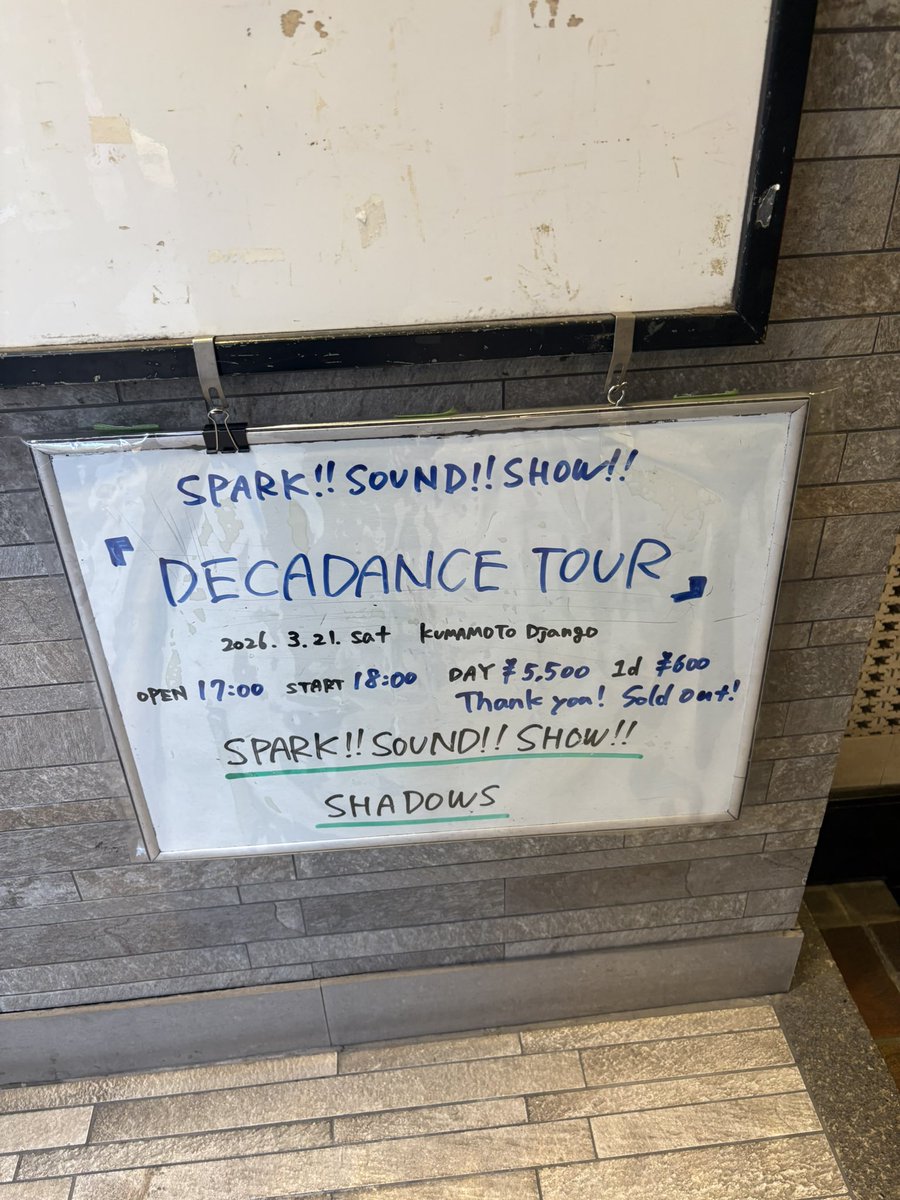 SPARK!! SOUND!! SHOW!!
『DECADANCE TOUR』
2026. 3. 21. sat KUMAMOTO Django
OPEN 17:00 START 18:00 DAY ¥5,500 1d ¥600
Thank you! Sold out!
SPARK!! SOUND!! SHOW!!
SHADOWS